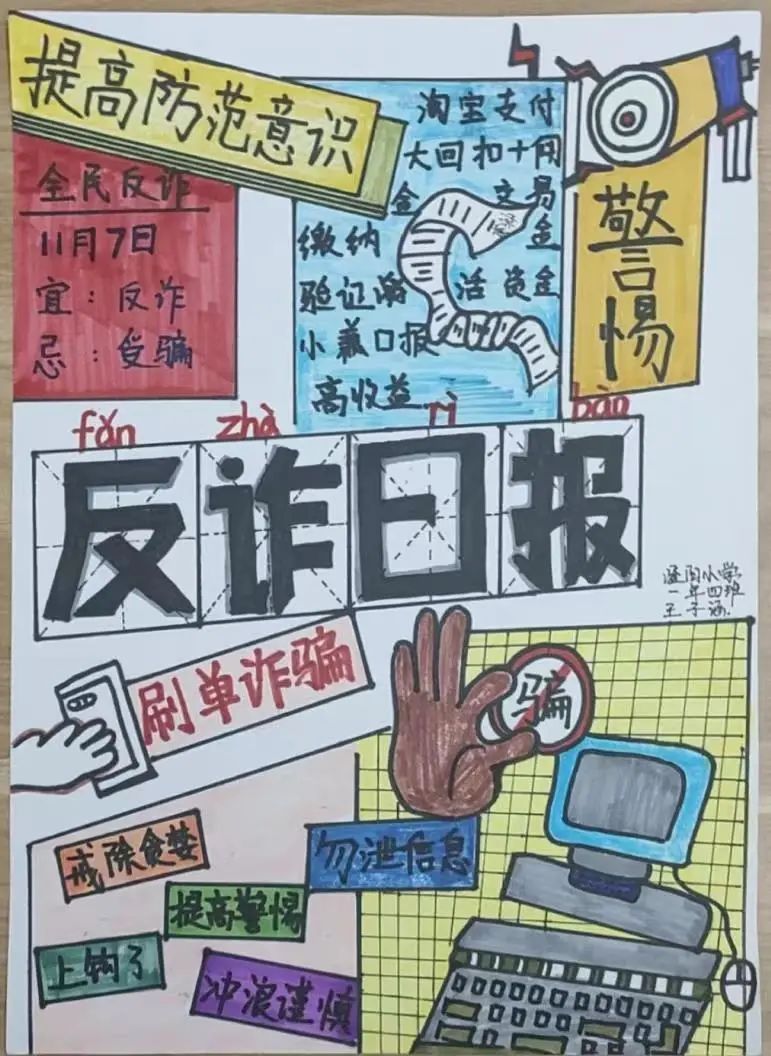 提高防范意识
全民反诈
11月7日
宜：反诈
忌：受骗
淘宝支付
大回扣十网
金 交易
缴纳 金
验证 活资金
小兼口报
高收益
警惕
fǎn zhà rì bào
反诈日报
小学
一年四班
王子涵
刷单诈骗
骗
戒除贪婪
勿泄信息
提高警惕
上钩了
冲浪谨慎